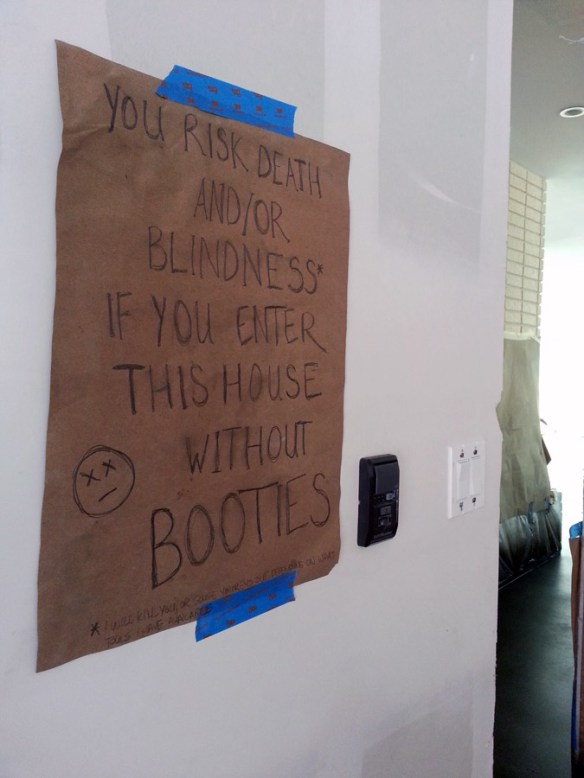 YOU RISK DEATH
AND/OR
BLINDNESS*
IF YOU ENTER
THIS HOUSE
WITHOUT
BOOTIES
* I WILL KILL YOU, OR